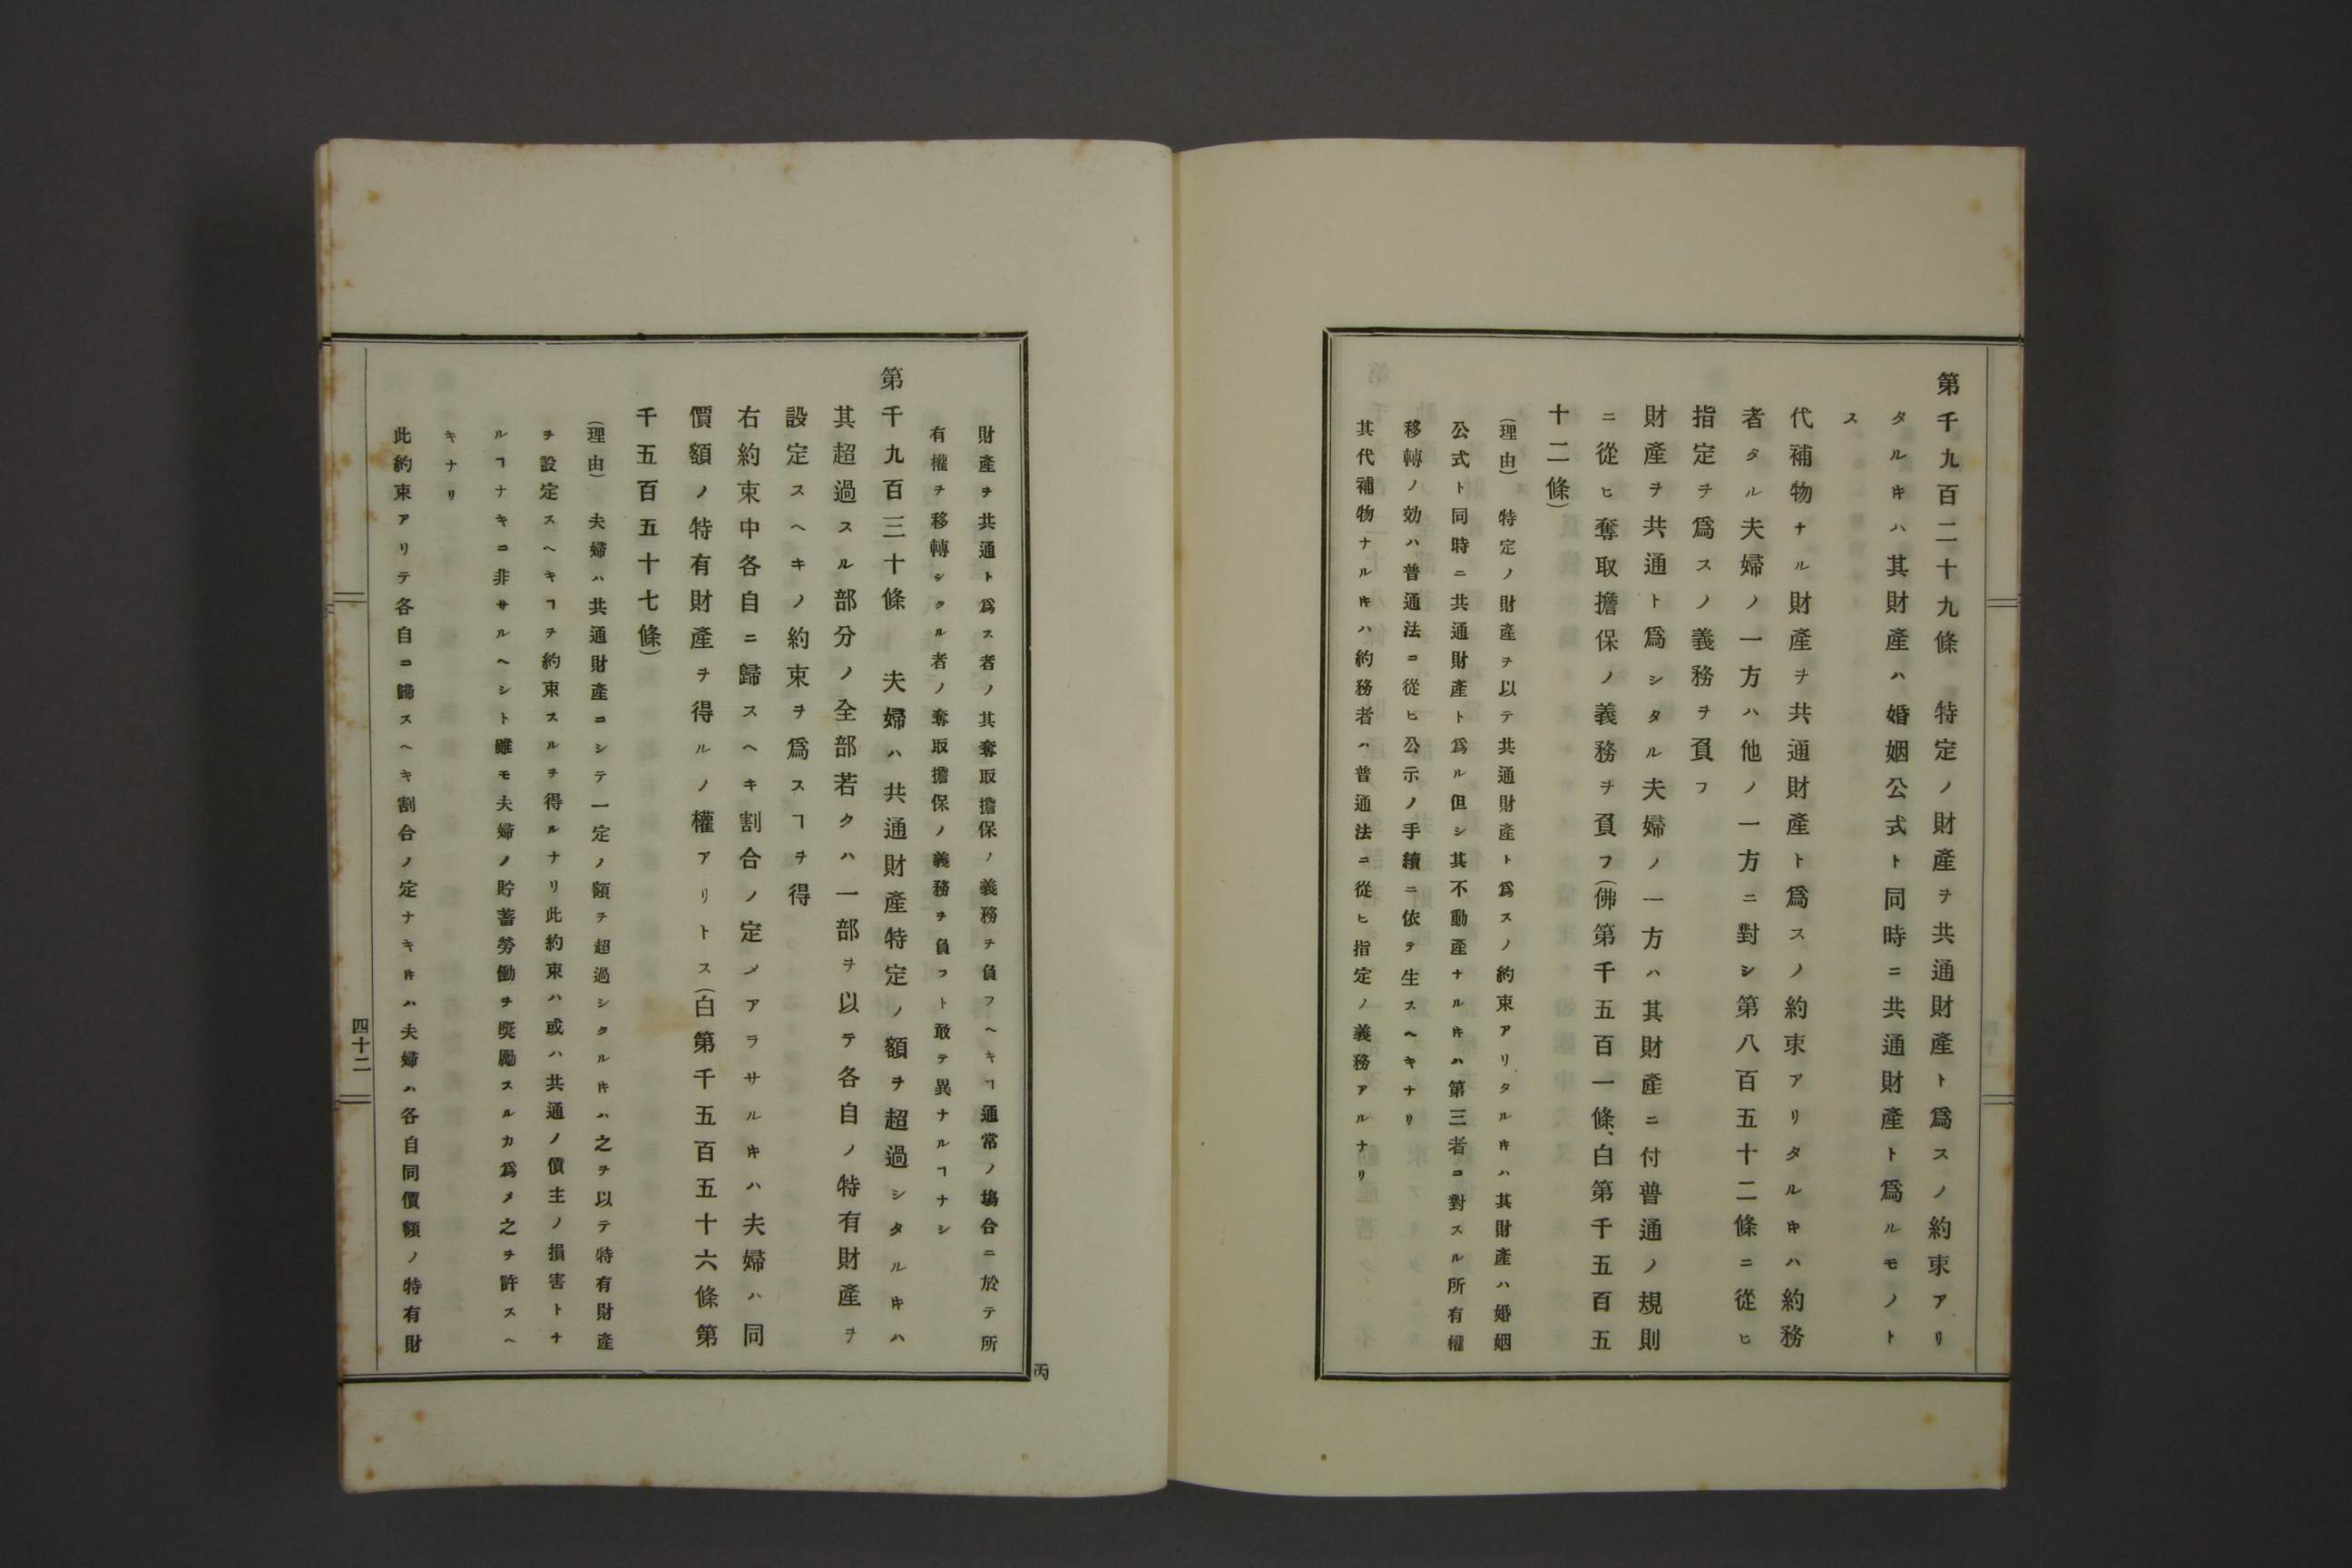 第千九百二十九條　特定ノ財產ヲ共通財產ト爲スノ約束アリ
タルキハ其財產ハ婚姻公式ト同時ニ共通財產ト爲ルモノト
ス
代補物ナル財產ヲ共通財產ト爲スノ約束アリタルキハ約務
者タル夫婦ノ一方ハ他ノ一方ニ對シ第八百五十二條ニ從ヒ
指定ヲ爲スノ義務ヲ負フ
財產ヲ共通ト爲シタル夫婦ノ一方ハ其財產ニ付普通ノ規則
ニ從ヒ奪取擔保ノ義務ヲ負フ(佛第千五百一條、白第千五百五
十二條)
(理由)　特定ノ財產ヲ以テ共通財產ト爲スノ約束アリタルキハ其財產ハ婚姻
公式ト同時ニ共通財產ト爲ル但シ其不動產ナルキハ第三者ニ對スル所有權
移轉ノ効ハ普通法ニ從ヒ公示ノ手續ニ依テ生スヘキナリ
其代補物ナルキハ約務者ハ普通法ニ從ヒ指定ノ義務アルナリ
財產ヲ共通ト爲ス者ノ其奪取擔保ノ義務ヲ負フヘキヿ通常ノ塲合ニ於テ所
有權ヲ移轉シタル者ノ奪取擔保ノ義務ヲ負フト敢テ異ナルヿナシ
第千九百三十條　夫婦ハ共通財產特定ノ額ヲ超過シタルキハ
其超過スル部分ノ全部若クハ一部ヲ以テ各自ノ特有財產ヲ
設定スヘキノ約束ヲ爲スヿヲ得
右約束中各自ニ歸スヘキ割合ノ定メアラサルキハ夫婦ハ同
價額ノ特有財產ヲ得ルノ權アリトス(白第千五百五十六條第
千五百五十七條)
(理由)　夫婦ハ共通財產ニシテ一定ノ額ヲ超過シタルキハ之ヲ以テ特有財產
ヲ設定スヘキヿヲ約束スルヲ得ルナリ此約束ハ或ハ共通ノ債主ノ損害トナ
ルヿナキニ非サルヘシト雖モ夫婦ノ貯蓄勞働ヲ奬勵スルカ爲メ之ヲ許スヘ
キナリ
此約束アリテ各自ニ歸スヘキ割合ノ定ナキキハ夫婦ハ各自同價額ノ特有財
四十二
丙